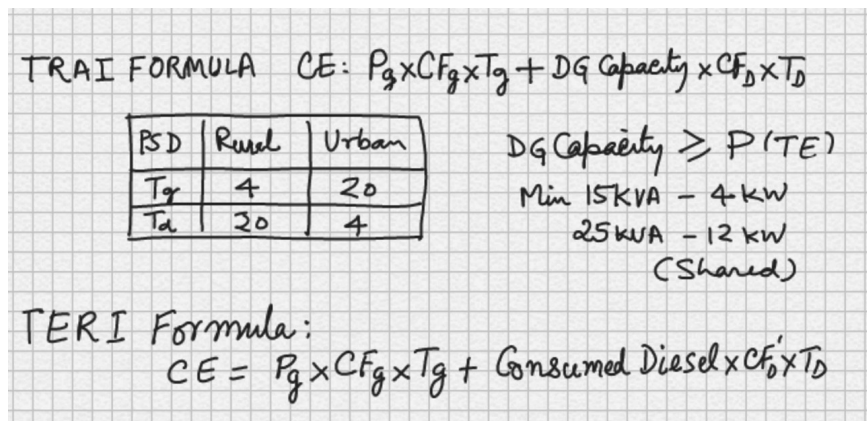 TRAI FORMULA CE: Pg×CFg×Tg + DG Capacity ×CF_D×T_D
PSD Rural Urban
Tg 4 20
Td 20 4
DG Capacity ≥ P(TE)
Min 15KVA - 4KW
25KVA - 12KW
(Shared)
TERI Formula:
CE = Pg×CFg×Tg + Consumed Diesel×CF_D'×T_D